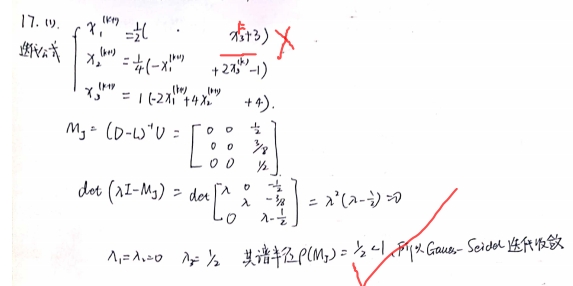 17. (1).
迭代公式 { x₁^(k+1) = 1/2( x₃^k+3)
x₂^(k+1) = 1/4(-x₁^(k+1) +2x₃^(k)-1)
x₃^(k+1) = 1(-2x₁^(k+1)+4x₂^(k+1) +4).
M_J = (D-L)^-1 U = [0 0 1/2; 0 0 3/8; 0 0 1/2]
det(λI-M_J) = det[λ 0 -1/2; λ -3/8; 0 λ-1/2] = λ²(λ-1/2)=0
λ₁=λ₂=0 λ₃=1/2 其谱半径ρ(M_J)=1/2<1,所以Gauss-Seidel迭代收敛